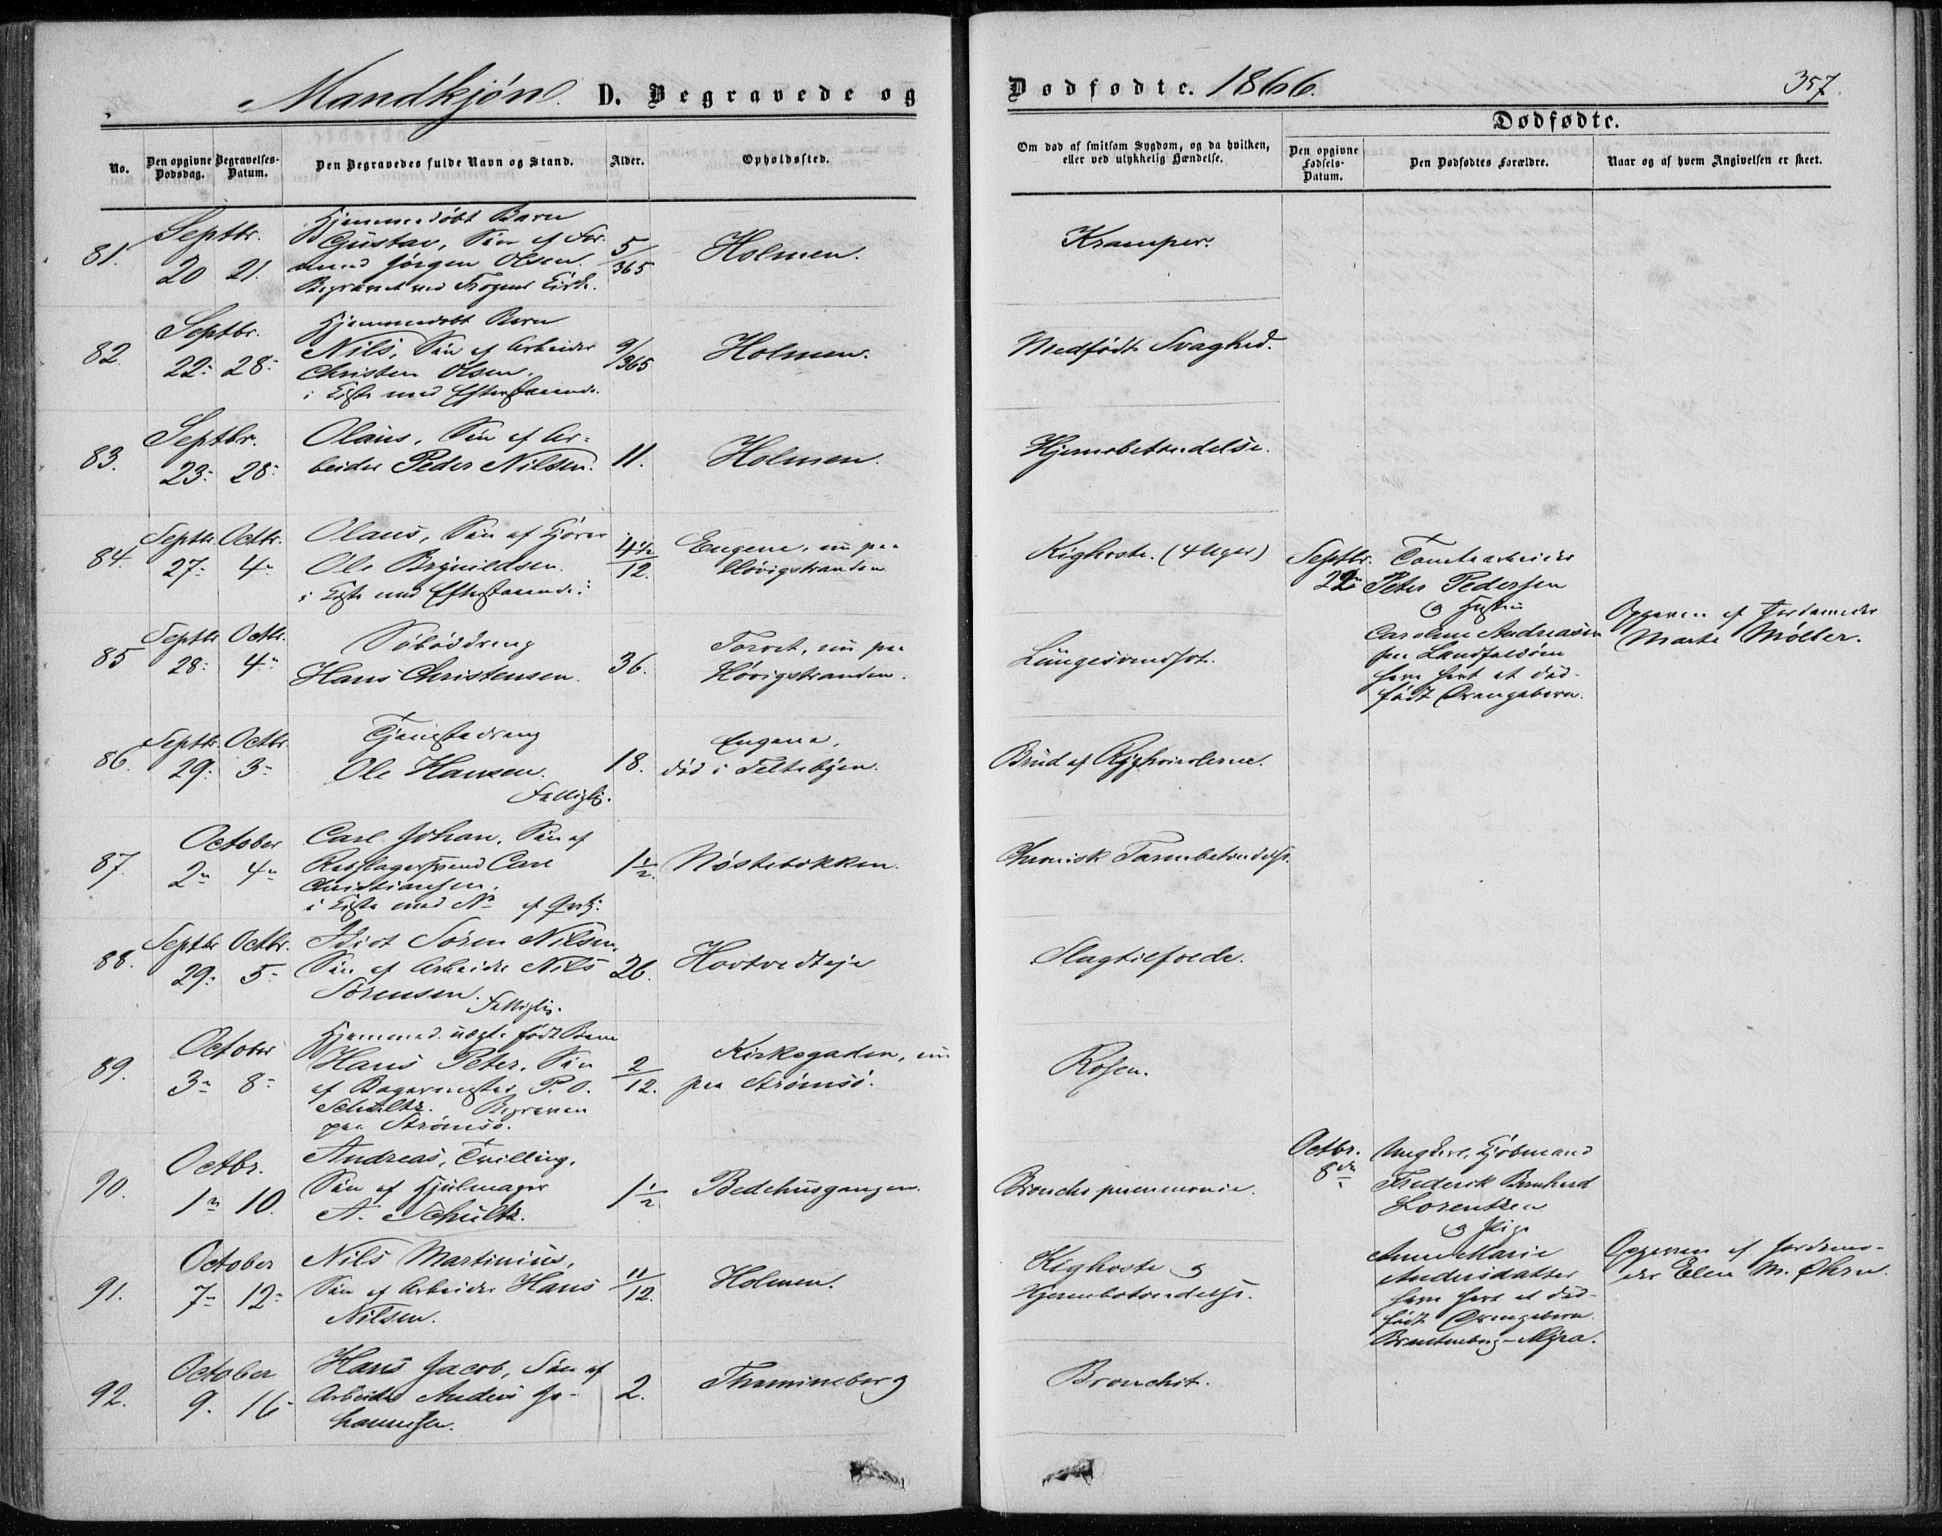 Mandkjøn. D. Begravede og
No.
Den opgivne Dødsdag.
Begravelses-Datum.
Den Begravedes fulde Navn og Stand.
Alder.
Opholdssted.
81.
Septbr.
20 21.
Hjemmedøbt Barn
Gustav, Søn af For-
mand Jørgen Olsen.
5/365
Holmen.
82.
Septbr.
22. 28.
Hjemmedøbt Barn
Nils, Søn af Arbeider
Christen Olsen.
i Kiste med Efterstaaende.
9/365
Holmen.
83.
Septbr.
23. 28.
Olaus, Søn af Ar-
beider Peder Nilsen.
11.
Holmen.
84.
Septbr. Octbr.
27. 4.
Olaus, Søn af Kjører
Ole Brynildsen.
i Kiste med Efterstaaende.
4½/12.
Engene, nu paa
Høvigstranden
85
Septbr. Octbr.
28. 4.
Hans Christensen.
36.
Torvet, nu paa
Høvigstranden.
86.
Septbr. Octbr.
29. 3.
Tjenestedreng
Ole Hansen.
Fattiglig.
18.
Engene,
død i Feltebyen.
87.
October
2. 4.
Carl Johan, Søn af
Rebslagersvend Carl
Christiansen.
i Kiste med No
1½.
Nøstebakken.
88.
Septbr Octbr.
29. 5.
Idiot Søren Nilsen,
Søn af Arbeider Nils
Sørensen. Fattiglig.
26.
Hovtvedteje
89.
October
3. 8.
Hjemmed. uægte født Barn
Hans Peter, Søn
af Bagermester P. O.
Schultz. Begraven
paa Strømsø.
2/12.
Kirkegaden, nu
paa Strømsø.
90.
Octbr.
1. 10.
Andreas, Tvilling,
Søn af Hjulmager
A. Schultz.
1½.
Bedehusgangen.
91.
October
7. 12.
Nils Martinius,
Søn af Arbeider Hans
Nilsen.
11/12.
Holmen.
92.
October
9. 16.
Hans Jacob, Søn af
Arbeider Anders Jo-
hannessen.
2.
Thamineberg
Dødfødte. 1866.
357.
Om død af smitsom Sygdom, og da hvilken,
eller ved ulykkelig Hændelse.
Dødfødte.
Den opgivne Fødsels-Datum.
Den Dødfødtes Forældre.
Naar og af hvem Angivelsen er skeet.
Kramper.
Medfødt Svaghed.
Hjernebetændelse.
Kighoste. (4 Uger)
Septbr.
22
Tomtearbeider
Peter Pedersen
og Hustru
Caroline Andreasen
paa Landfaldøen
have havt et død-
født Drengebarn.
Opgiven af Jordemoder
Marte Møller.
Lungesvindsot.
Brud af Ryghvirvlerne.
Chronisk Tarmbetændelse.
Slagtilfælde.
Rosen.
Bronche pneumonie.
Octbr.
8de
Ungkarl, Kjøbmand
Frederik Bernhard
Lorentzen
og Pige
Anne Marie
Andersdatter
have havt et død-
født Drengebarn.
Opgiven af Jordemo-
der Elen M. Øhrn.
Kighoste og
Hjernebetændelse.
Bronchit.